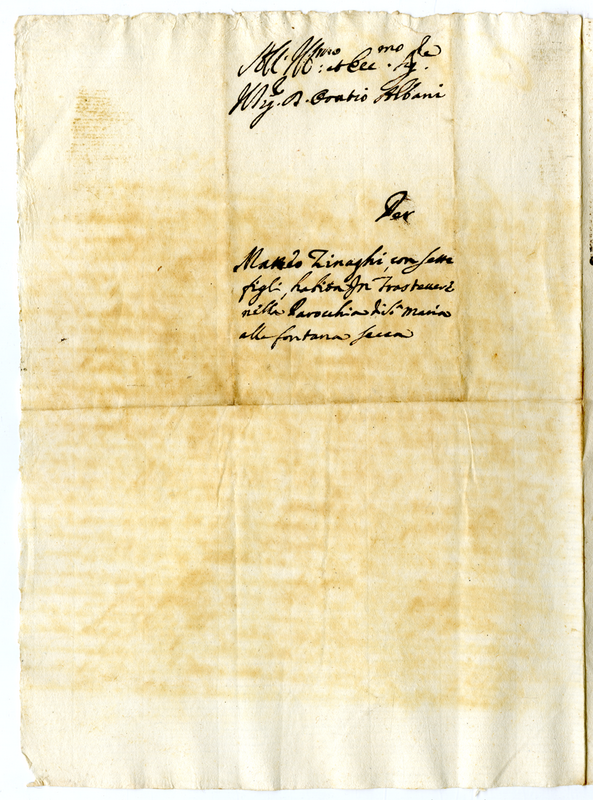 All' Ill.mo et Ecc.mo Sig.re
Il Sig.r D. Oratio Albani
Per
Matteo Zinaghi, con sette
figli, habita In Trastevere
nella Parochia di S.a Maria
alla fontana secca